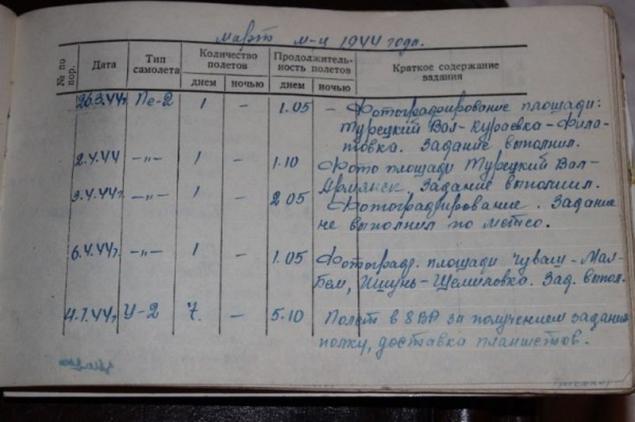 Март м-ц 1944 года.
№ по пор. Дата Тип самолета Количество полетов Продолжительность полетов Краткое содержание задания
днем ночью днем ночью
26.3.44г Пе-2 1 – 1.05 – Фотографирование площади:
Турецкий Вал-Кураевка-Фила-
товка. Задание выполнил.
2.4.44 –"– 1 – 1.10 Фото площади Турецкий Вал-
Армянск. Задание выполнил.
3.4.44г. –"– 1 – 2.05 Фотографирование. Задание
не выполнил по метео.
6.4.44г. –"– 1 – 1.05 Фотограф. площади Чуваш-Мал-
Бем, Ишунь- Зад. выпол.
44г У-2 7. – 5.10 Полет в 8ВА за получением задания
полку, доставка планшетов.